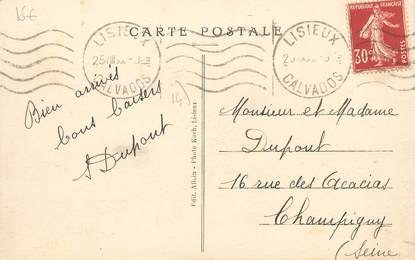 15€
CARTE POSTALE
LISIEUX
CALVADOS
LISIEUX
CALVADOS
RÉPUBLIQUE FRANÇAISE
30c
Bien arrivés
bons baisers
Dupont
(14)
Edit. Alkin - Photo Koch, Lisieux
Monsieur et Madame
Dupont
16 rue des Acacias
Champigny
(Seine